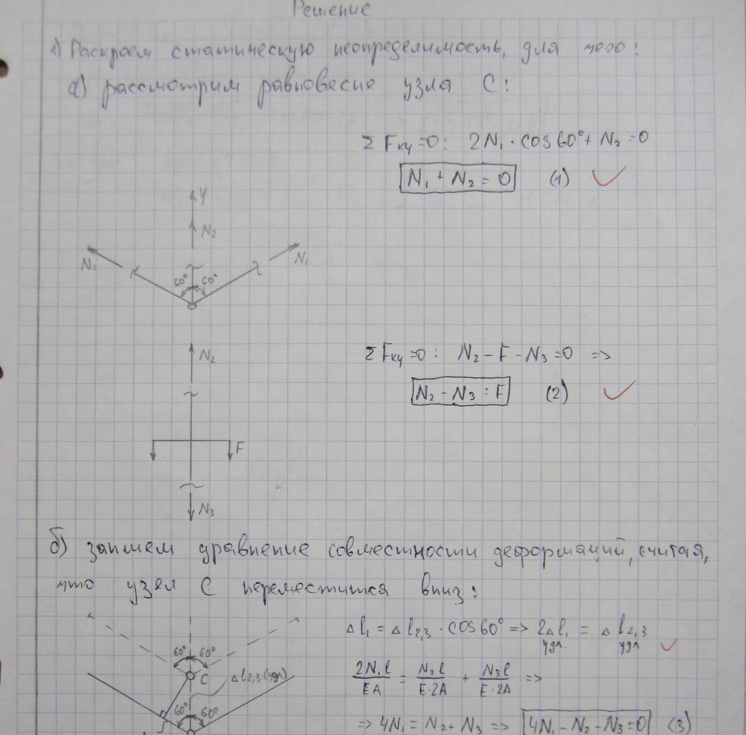 Решение
1) Раскроем статическую неопределимость, для чего:
а) рассмотрим равновесие узла С:
ΣFкy=0: 2N₁·cos60°+N₂=0
N₁+N₂=0 (1)
y
N₂
N₁ N₁
60° 60°
N₂
ΣFкy=0: N₂-F-N₃=0 =>
N₂-N₃=F (2)
F
N₃
б) запишем уравнение совместности деформаций, считая,
что узел С переместится вниз:
Δl₁=Δl₂,₃·cos60° => 2Δl₁=Δl₂,₃
удл. удл
60° 60°
C
Δl₂,₃(удл)
2N₁l/EA = N₂l/E·2A + N₃l/E·2A =>
60° 60°
=> 4N₁=N₂+N₃ => 4N₁-N₂-N₃=0 (3)